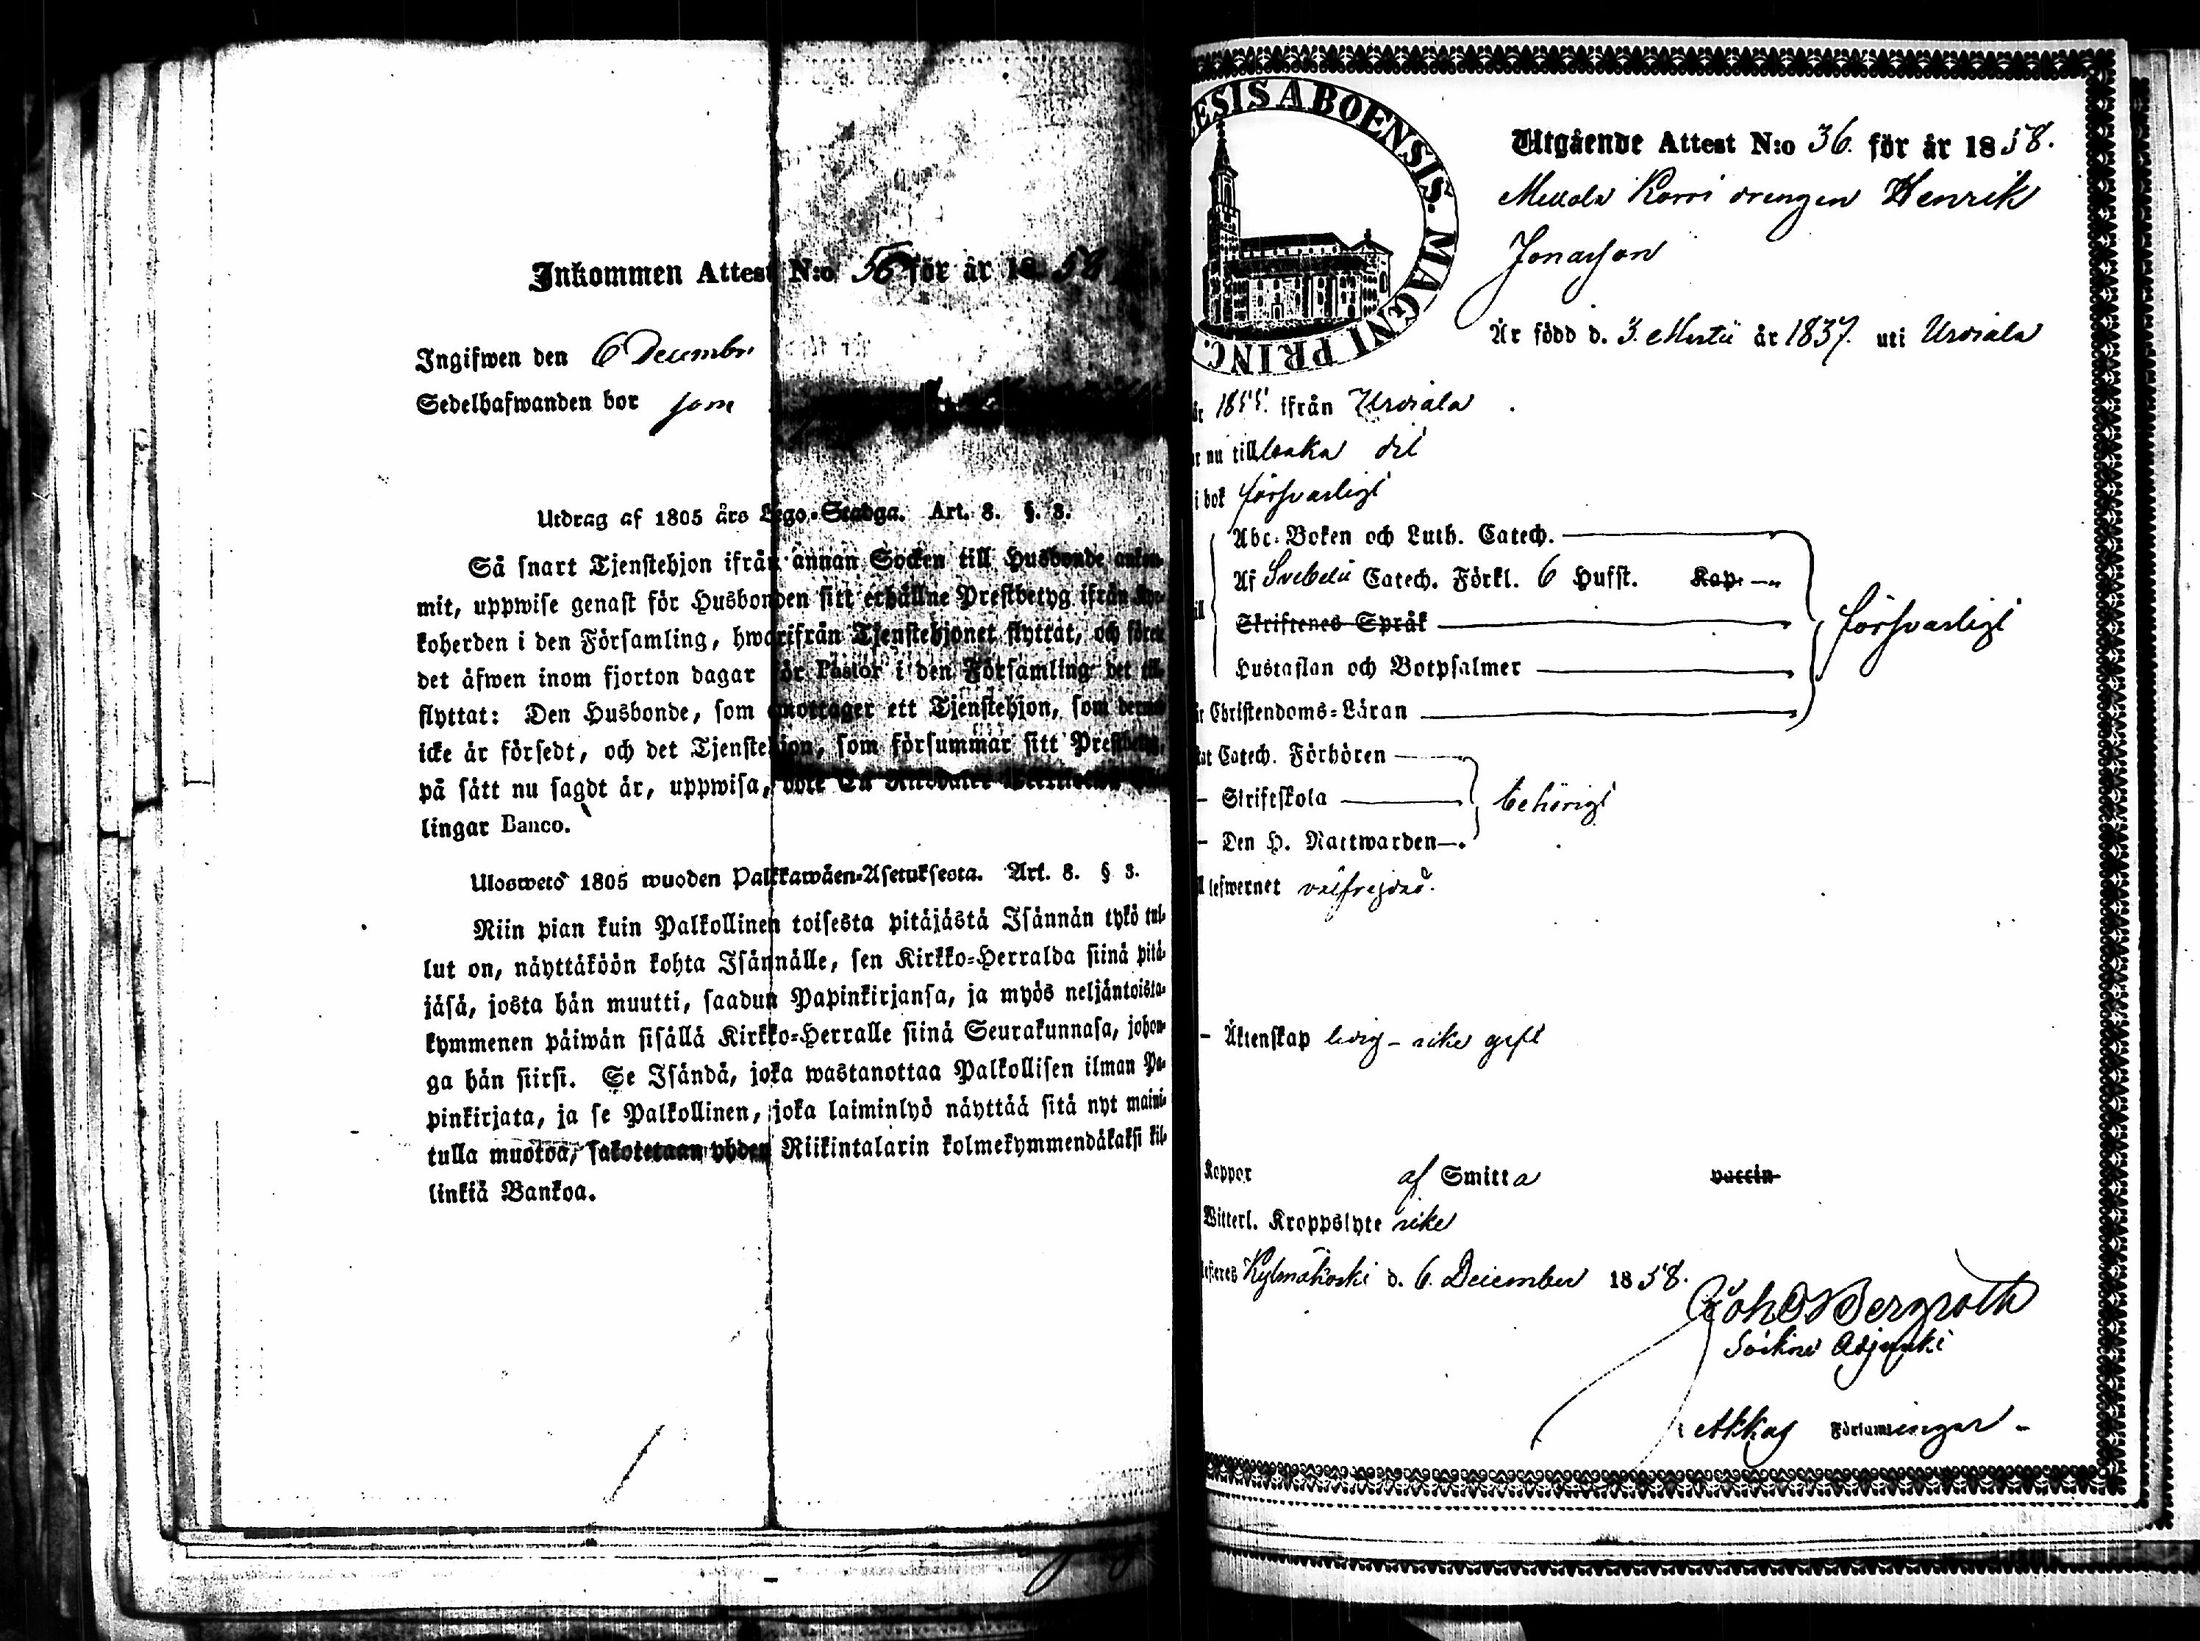 Inkommen Attest N:o 56 för år 1858
Ingifwen den 6 Decembr
Sedelhafwanden bor som
Utdrag af 1805 års Lego-Stadga. Art. 8. §. 3.
Så snart Tjenstehjon ifrån annan Socken till Husbonde ankom-
mit, uppwise genast för Husbonden sitt erhållne Prestbetyg ifrån Kyr-
koherden i den Församling, hwarifrån Tjenstehjonet flyttat, och förete
det äfwen inom fjorton dagar för Pastor i den Församling det till-
flyttat: Den Husbonde, som emottager ett Tjenstehjon, som dermed
icke är försedt, och det Tjenstehjon, som försummar sitt Prestbetyg,
på sätt nu sagdt är, uppwisa, böte En Riksdaler
lingar Banco.
Ulosweto 1805 wuoden Palkkawäen-Asetuksesta. Art. 8. § 3.
Niin pian kuin Palkollinen toisesta pitäjästä Isännän tykö tul-
lut on, näyttäköön kohta Isännälle, sen Kirkko-Herralda siinä pitä-
jäsä, josta hän muutti, saadun Papinkirjansa, ja myös neljäntoista-
kymmenen päiwän sisällä Kirkko-Herralle siinä Seurakunnasa, johon-
ga hän siirsi. Se Isändä, joka wastanottaa Palkollisen ilman Pa-
pinkirjata, ja se Palkollinen, joka laiminlyö näyttää sitä nyt maini-
tulla muotoa, sakotetaan yhden Riikintalarin kolmekymmendäkaksi kil-
linkiä Bankoa.
ESIS ABOENSIS. MAGNI PRINC.
Utgående Attest N:o 36. för år 1858.
Korri drengen Henrik
Jonasson
Är född d. 3. Martii år 1837. uti Urdiala
år 1855. ifrån Urdiala
nu tillbaka dit
i bok försvarligt
Abc-Boken och Luth. Catech.
Af Svebelii Catech. Förkl. 6 Hufst. Kap.
Skriftenes Språk
försvarligt
Hustaflan och Botpsalmer
Christendoms-Läran
Catech. Förhören
- Skriftskola
behörigt
- Den H. Nattwarden
lefwernet välfrejdad.
- Äktenskap ledig - icke gift
Koppor af Smitta vaccin
Witterl. Kroppslyte icke
Kylmäkoski d. 6. December 1858.
Joh O Bergroth
Sockne Adjunkt
Akkas Församlingar -